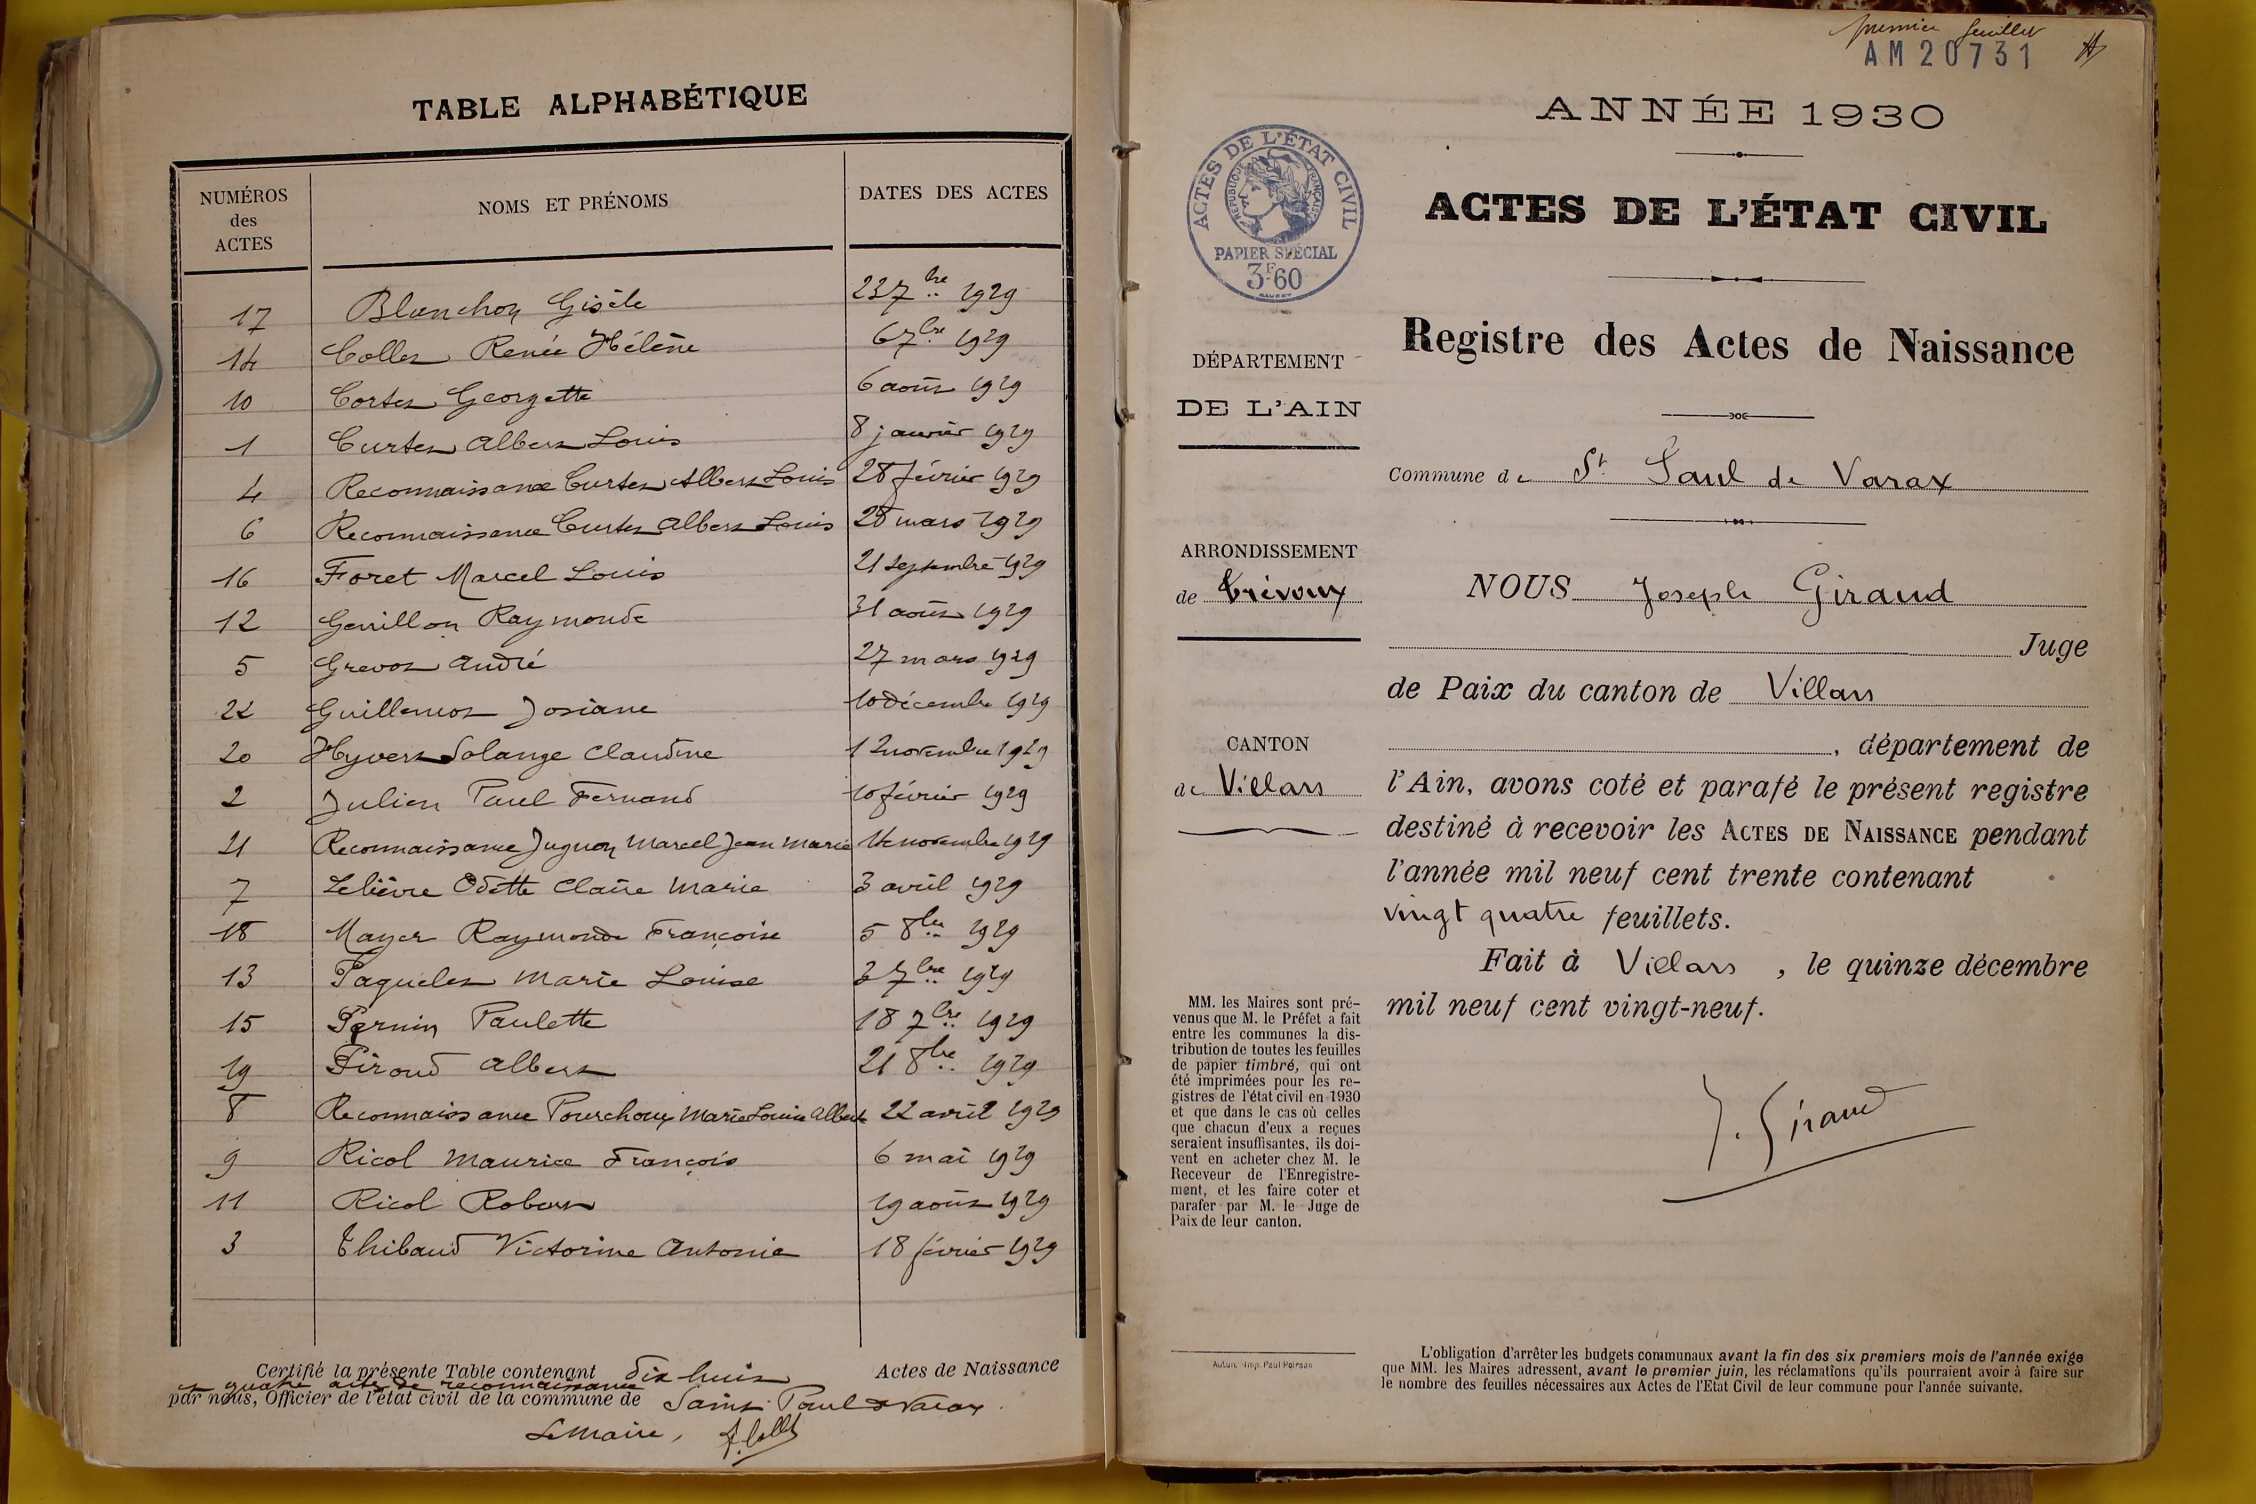 TABLE ALPHABÉTIQUE
NUMÉROS des ACTES NOMS ET PRÉNOMS DATES DES ACTES
17 Blanchon Gisèle 23 7bre 1929
14 Collet Renée Hélène 6 7bre 1929
10 Cortet Georgette 6 août 1929
1 Curtet Albert Louis 8 janvier 1929
4 Reconnaissance Curtet Albert Louis 28 février 1929
6 Reconnaissance Curtet Albert Louis 28 mars 1929
16 Foret Marcel Louis 21 septembre 1929
12 Genillon Raymonde 31 août 1929
5 Grevot André 27 mars 1929
22 Guillemot Josiane 10 décembre 1929
20 Hyvert Solange Claudine 12 novembre 1929
2 Julien Paul Fernand 10 février 1929
21 Reconnaissance Jugnon Marcel Jean Marie 14 novembre 1929
7 Lelièvre Odette Claire Marie 3 avril 1929
18 Mayer Raymonde Françoise 5 8bre 1929
13 Paquelet Marie Louise 3 7bre 1929
15 Pernin Paulette 18 7bre 1929
19 Piroud Albert 21 8bre 1929
8 Reconnaissance Pourchoux Marie Louise Albert 22 avril 1929
9 Ricol Maurice François 6 mai 1929
11 Ricol Robert 19 août 1929
3 Thibaud Victorine Antonie 18 février 1929
Certifié la présente Table contenant dix huit Actes de Naissance
et quatre actes de reconnaissance
par nous, Officier de l'état civil de la commune de Saint Paul de Varax
Le Maire, A. Collet
premier feuillet
AM 20731
ANNÉE 1930
ACTES DE L'ÉTAT CIVIL
RÉPUBLIQUE FRANÇAISE
PAPIER SPÉCIAL
3F60
ACTES DE L'ÉTAT CIVIL
Registre des Actes de Naissance
DÉPARTEMENT
DE L'AIN
Commune de St Paul de Varax
ARRONDISSEMENT
de Trévoux
NOUS Joseph Giraud
Juge
de Paix du canton de Villars
CANTON
de Villars
, département de
l'Ain, avons coté et parafé le présent registre
destiné à recevoir les ACTES DE NAISSANCE pendant
l'année mil neuf cent trente contenant
vingt quatre feuillets.
Fait à Villars, le quinze décembre
mil neuf cent vingt-neuf.
J. Giraud
MM. les Maires sont pré-
venus que M. le Préfet a fait
entre les communes la dis-
tribution de toutes les feuilles
de papier timbré, qui ont
été imprimées pour les re-
gistres de l'état civil en 1930
et que dans le cas où celles
que chacun d'eux a reçues
seraient insuffisantes, ils doi-
vent en acheter chez M. le
Receveur de l'Enregistre-
ment, et les faire coter et
parafer par M. le Juge de
Paix de leur canton.
Autun. Imp. Paul Poirson
L'obligation d'arrêter les budgets communaux avant la fin des six premiers mois de l'année exige
que MM. les Maires adressent, avant le premier juin, les réclamations qu'ils pourraient avoir à faire sur
le nombre des feuilles nécessaires aux Actes de l'Etat Civil de leur commune pour l'année suivante.